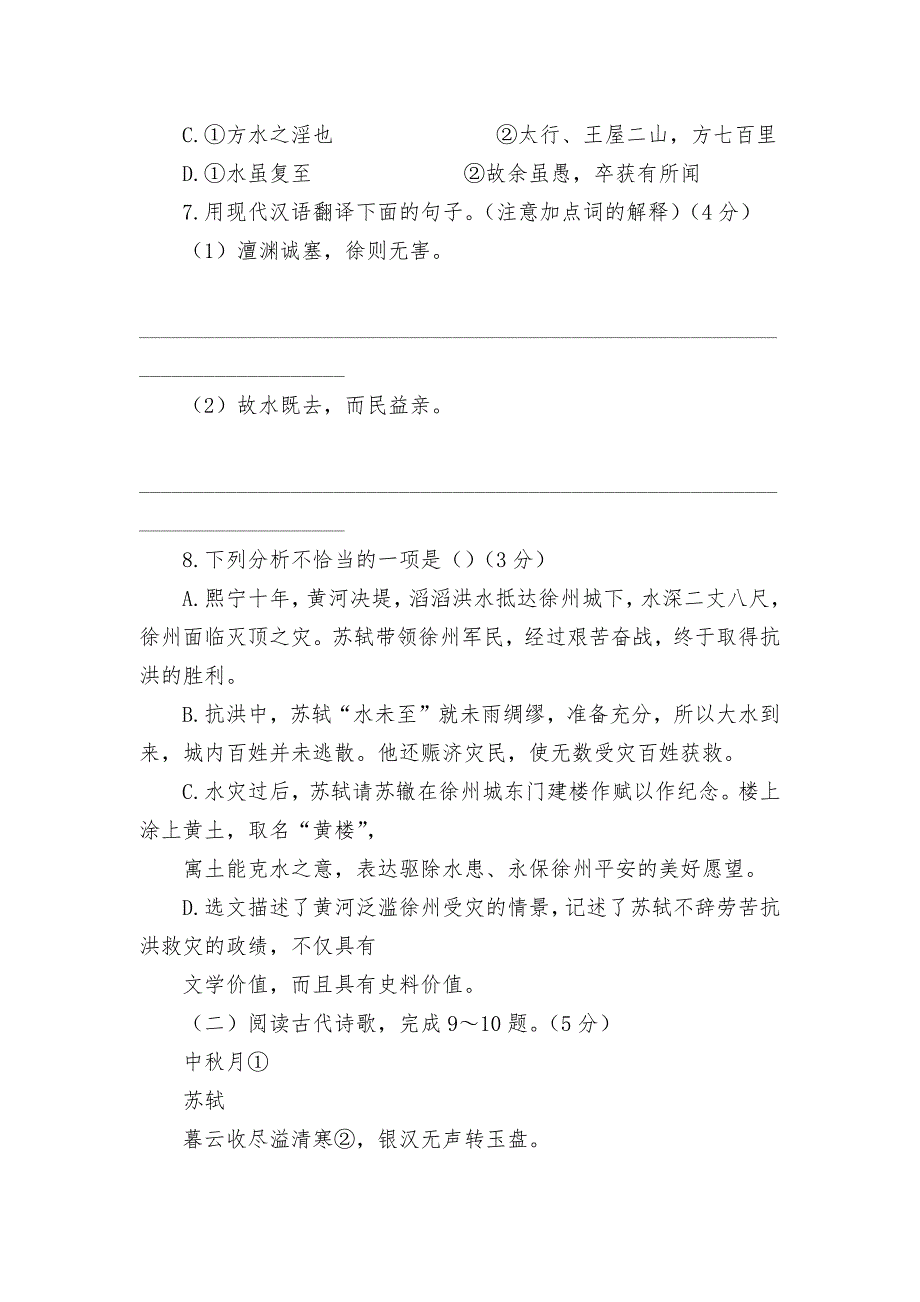 C.①方水之淫也 ②太行、王屋二山，方七百里
D.①水虽复至 ②故余虽愚，卒获有所闻
7.用现代汉语翻译下面的句子。（注意加点词的解释）（4分）
（1）澶渊诚塞，徐则无害。
____________________________________________________________
___________________
（2）故水既去，而民益亲。
____________________________________________________________
___________________
8.下列分析不恰当的一项是（）（3分）
A.熙宁十年，黄河决堤，滔滔洪水抵达徐州城下，水深二丈八尺，
徐州面临灭顶之灾。苏轼带领徐州军民，经过艰苦奋战，终于取得抗
洪的胜利。
B.抗洪中，苏轼“水未至”就未雨绸缪，准备充分，所以大水到
来，城内百姓并未逃散。他还赈济灾民，使无数受灾百姓获救。
C.水灾过后，苏轼请苏辙在徐州城东门建楼作赋以作纪念。楼上
涂上黄土，取名“黄楼”，
寓土能克水之意，表达驱除水患、永保徐州平安的美好愿望。
D.选文描述了黄河泛滥徐州受灾的情景，记述了苏轼不辞劳苦抗
洪救灾的政绩，不仅具有
文学价值，而且具有史料价值。
（二）阅读古代诗歌，完成9～10题。（5分）
中秋月①
苏轼
暮云收尽溢清寒②，银汉无声转玉盘。